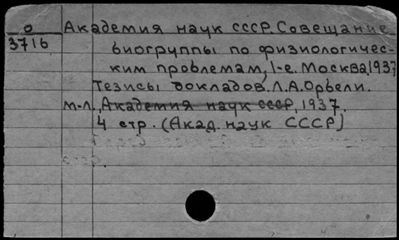 О Академия наук СССР. Совещание
3716 биогруппы по физиологичес-
ким проблемам, 1-е. Москва, 1937
Тезисы докладов. Л.А. Орбели.
М.-Л., Академия наук СССР, 1937.
4 стр. (Акад. наук СССР)